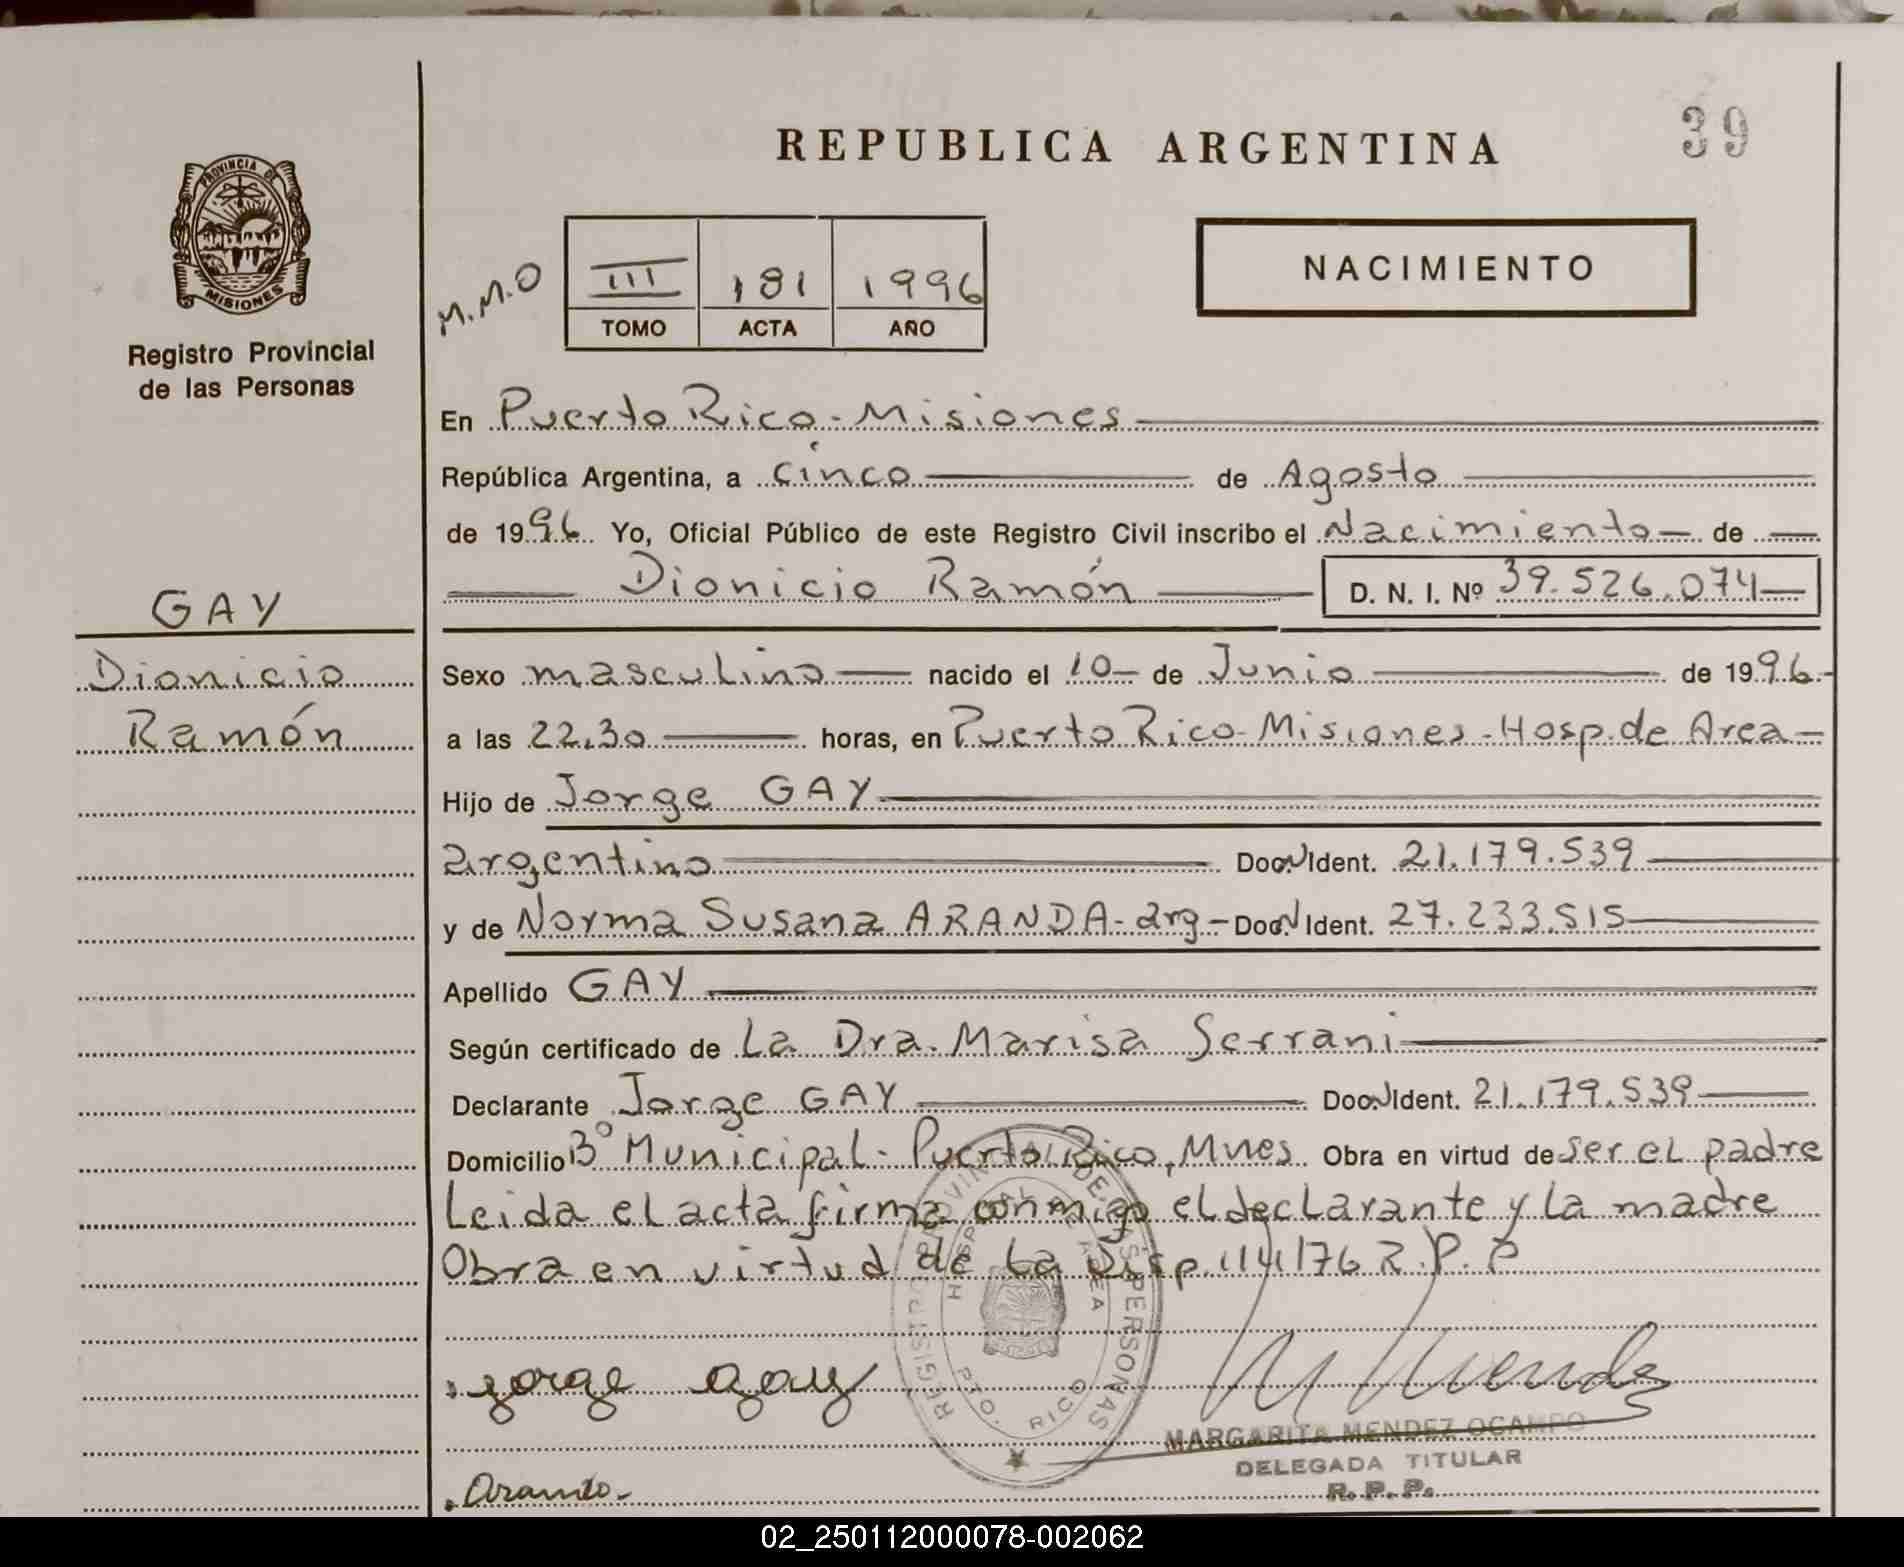 REPUBLICA ARGENTINA
39
PROVINCIA DE
MISIONES
Registro Provincial
de las Personas
M.M.O
III 181 1996
TOMO ACTA AÑO
NACIMIENTO
En Puerto Rico - Misiones
República Argentina, a cinco de Agosto
de 1996 Yo, Oficial Público de este Registro Civil inscribo el Nacimiento de
Dionicio Ramón D. N. I. Nº 39.526.074
GAY
Dionicio
Ramón
Sexo masculino nacido el 10 de Junio de 1996
a las 22.30 horas, en Puerto Rico - Misiones - Hosp. de Area
Hijo de Jorge GAY
argentino Doc. N Ident. 21.179.539
y de Norma Susana ARANDA - arg - Doc. N Ident. 27.233.515
Apellido GAY
Según certificado de La Dra. Marisa Serrani
Declarante Jorge GAY Doc. N Ident. 21.179.539
Domicilio Bº Municipal - Puerto Rico, Mnes Obra en virtud de ser el padre
Leida el acta firma conmigo el declarante y la madre
Obra en virtud de la Disp. 114/76 R.P.P
REGISTRO PROVINCIAL DE LAS PERSONAS
HOSPITAL DE AREA
PTO. RICO
jorge gay
MARGARITA MENDEZ OCAMPO
DELEGADA TITULAR
R. P. P.
Aranda
02_250112000078-002062